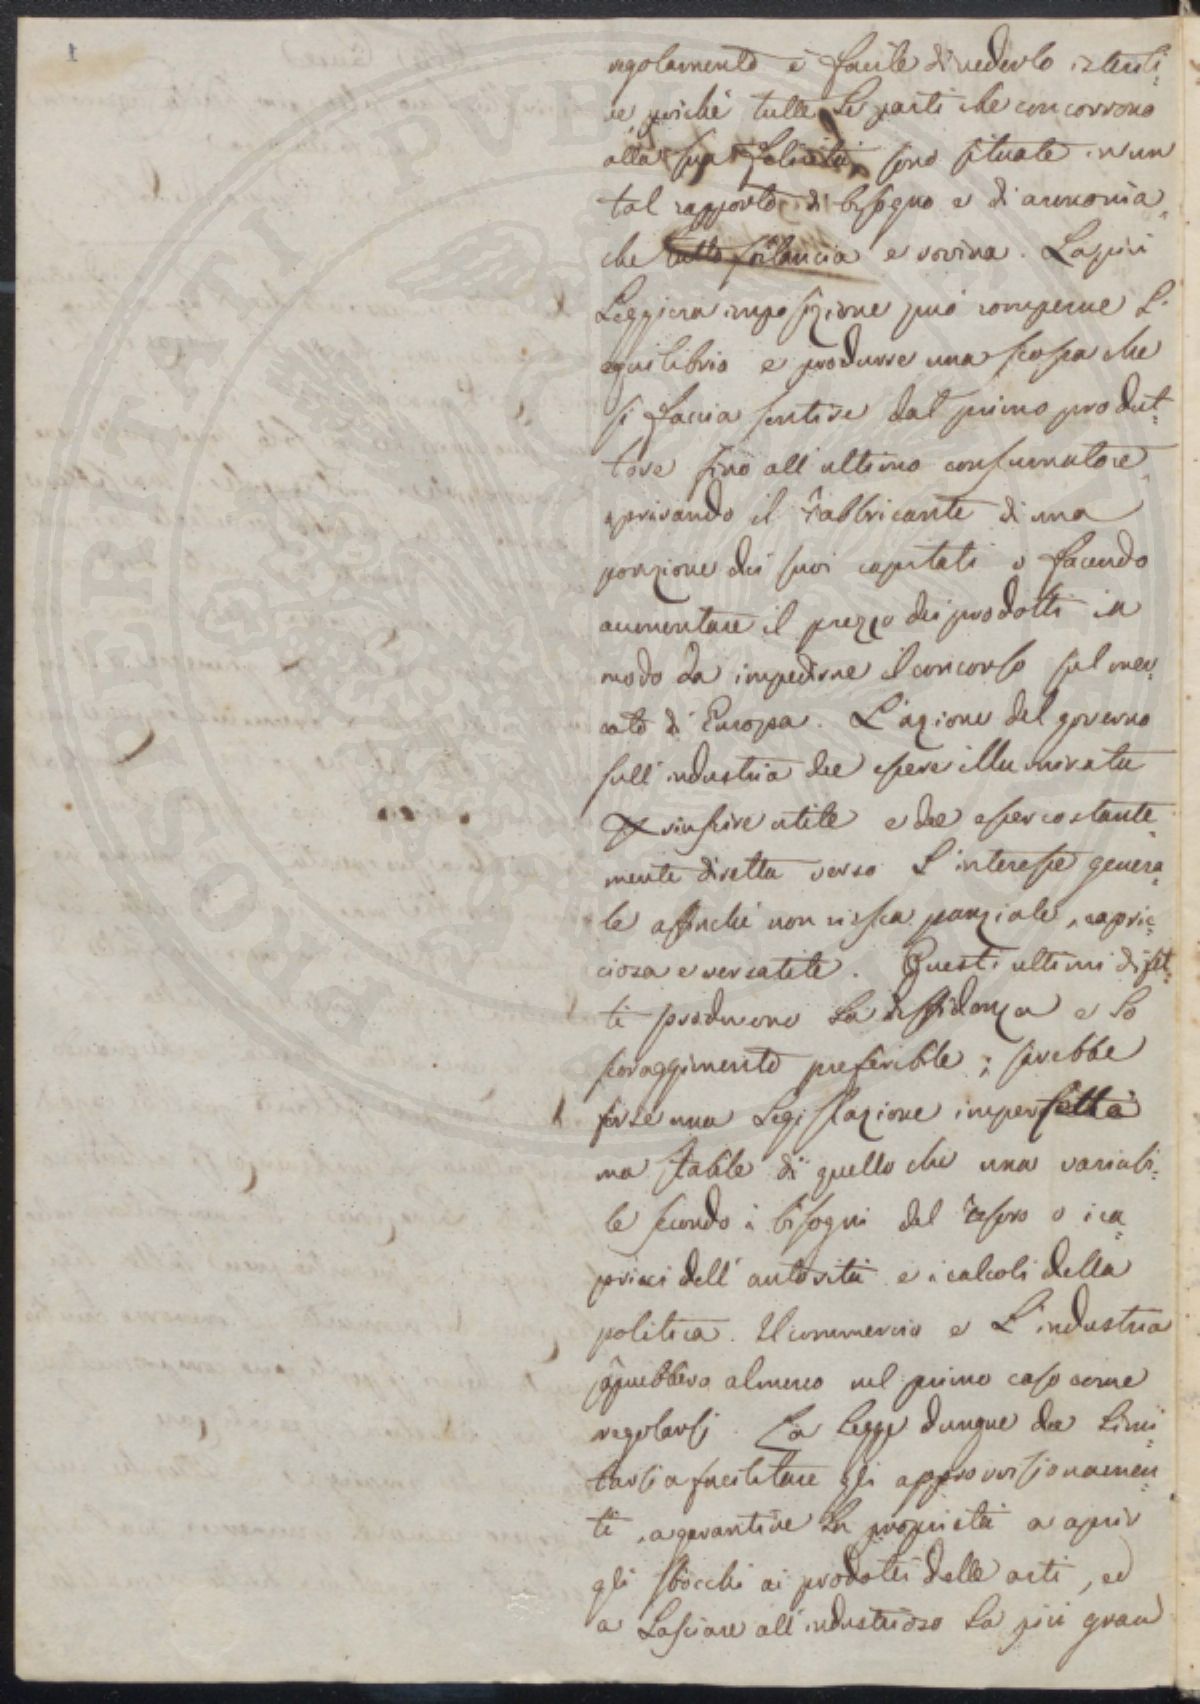 1
regolamento è facile di vederlo istenti-
re, poiché tutte le parti che concorrono
alla sua felicità, sono situate in un
tal rapporto di bisogno e di armonia,
che tutto si bilancia e rovina. La più
leggiera imposizione può romperne l'
equilibrio e produrre una scossa che
si faccia sentire dal primo produt-
tore sino all'ultimo consumatore,
privando il fabbricante di una
porzione dei suoi capitali o facendo
aumentare il prezzo dei prodotti in
modo da impedirne il concorso sul mer-
cato di Europa. L'azione del governo
sull'industria dee essere illuminata
riuscire utile e dee esser costante-
mente diretta verso l'interesse genera-
le affinché non riesca parziale, capric-
ciosa e versatile. Questi ultimi difet-
ti producono la diffidenza e lo
scoraggimento preferibile; sarebbe
forse una legislazione imperfetta
ma stabile di quello che una variabi-
le secondo i bisogni del Tesoro o i ca-
pricci dell'autorità e i calcoli della
politica. Il commercio e l'industria
saprebbero almeno nel primo caso come
regolarsi. La legge dunque dee limi-
tarsi a facilitare gli approvvisionamen-
ti, a garantire la proprietà a aprir
gli sbocchi ai prodotti delle arti, ed
a lasciare all'industrioso la più gran